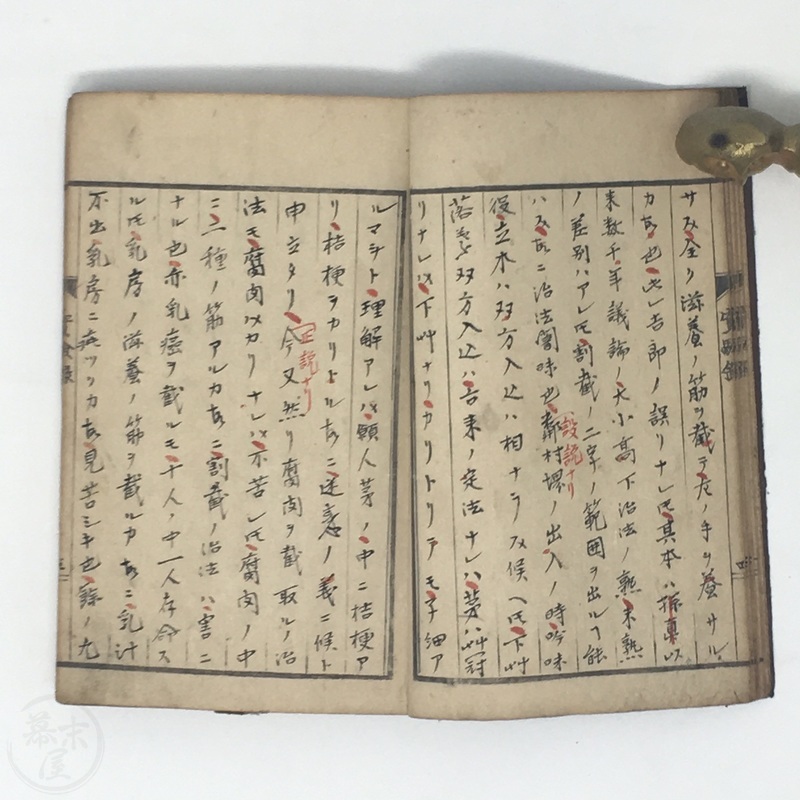 サス全ク滋養ノ筋ヲ截テ左ノ手ヲ養サル
カ故也此レ吉郎ノ誤リナレ𪜈其本ハ以
来数千年議論ノ大小高下治法ノ熟未熟
ノ差別ハアレ𪜈割截ノ二字ノ範囲ヲ出ルヿ能
ハス故ニ治法不吟味也隣村堺ノ出入ノ時吟味
設説ナリ
役立木ハ双方入込ハ相ナラス候ヘ𪜈下艸
落葉双方入込ハ古来ノ定法ナレハ茅ハ艸冠
リナレハ下艸ナリカリトリテモ子細ア
ルマシト理解アレハ願人茅ノ中ニ桔梗ア
リ桔梗ヲカリトル故ニ迷惑ノ義ニ候ト
申立タリ今又然リ腐肉ヲ截取ルノ治
正説ナリ
法モ腐肉ハカリナレハ不苦レ𪜈腐肉ノ中
ニ二種ノ筋アルカ故ニ割截ノ治法ハ害ニ
ナル也亦乳癌ヲ截ルモ千人ノ中一人存命ス
ル𪜈乳房ノ滋養ノ筋ヲ截ルカ故ニ乳汁
不出乳房ニ癒ツリカ故見苦シキ也緜ノ九
幕末屋